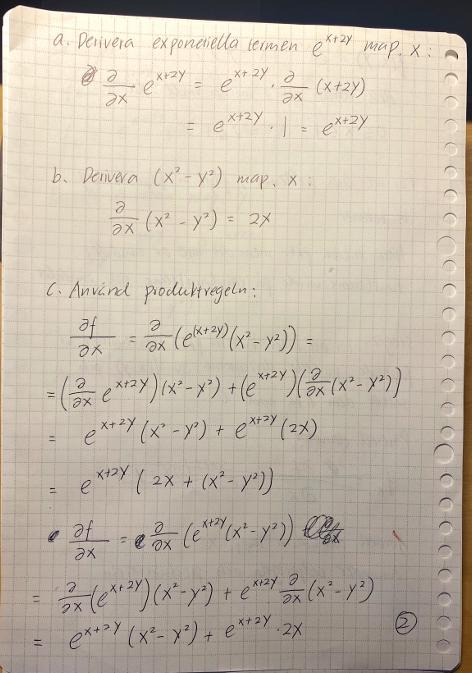 a. Derivera exponentiella termen e^(x+2y) map. x:
∂/∂x e^(x+2y) = e^(x+2y) · ∂/∂x (x+2y)
= e^(x+2y) · 1 = e^(x+2y)
b. Derivera (x² - y²) map. x:
∂/∂x (x² - y²) = 2x
c. Använd produktregeln:
∂f/∂x = ∂/∂x (e^(x+2y) (x² - y²)) =
= (∂/∂x e^(x+2y)) (x² - y²) + (e^(x+2y)) (∂/∂x (x² - y²))
= e^(x+2y) (x² - y²) + e^(x+2y) (2x)
= e^(x+2y) (2x + (x² - y²))
∂f/∂x = ∂/∂x (e^(x+2y) (x² - y²))
= ∂/∂x (e^(x+2y)) (x² - y²) + e^(x+2y) ∂/∂x (x² - y²)
= e^(x+2y) (x² - y²) + e^(x+2y) · 2x
2